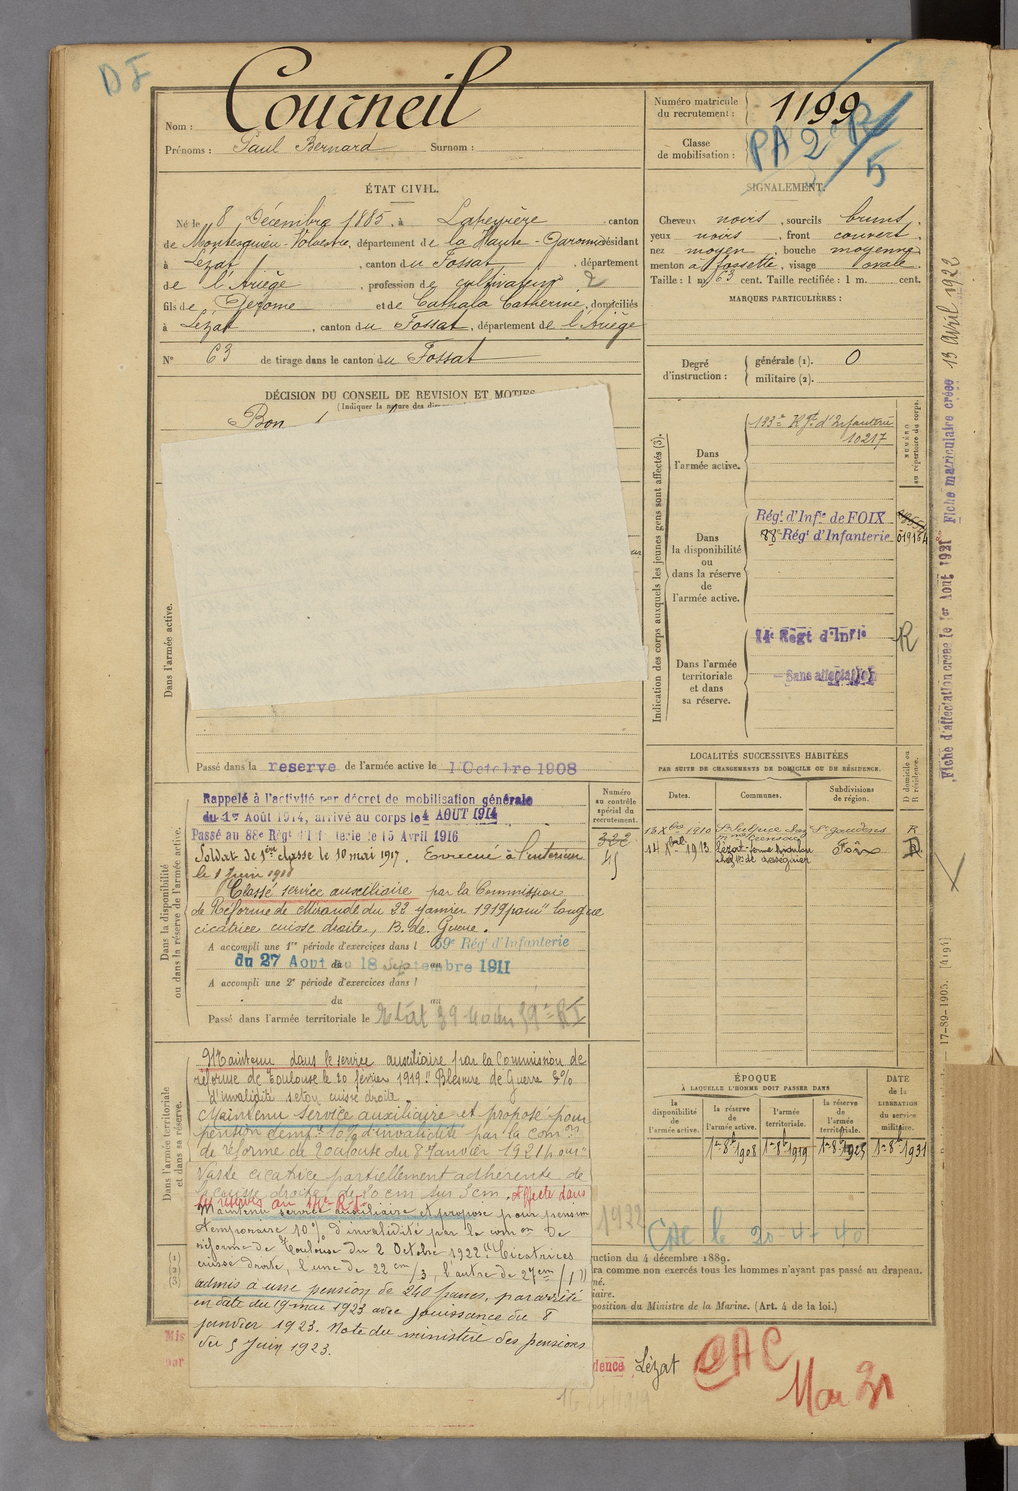 DF
Nom : Courneil
Prénoms : Paul Bernard Surnom :
Numéro matricule du recrutement : 1199
Classe de mobilisation :
PA 2 R/5
ÉTAT CIVIL.
Né le 8 Décembre 1885, à Laheyrère canton
de Montesquieu-Volvestre, département de la Haute-Garonne résidant
à Lézat, canton du Fossat, département
de l'Ariège, profession de cultivateur 2
fils de Jérôme et de Cathala Catherine, domiciliés
à Lézat, canton du Fossat, département de l'Ariège
N° 63 de tirage dans le canton du Fossat
SIGNALEMENT.
Cheveux noirs, sourcils bruns,
yeux noirs, front couvert
nez moyen, bouche moyenne
menton à fossette, visage ovale
Taille : 1 m. 63 cent. Taille rectifiée : 1 m. cent.
MARQUES PARTICULIÈRES :
Degré d'instruction :
générale (1). 0
militaire (2).
DÉCISION DU CONSEIL DE REVISION ET MOTIFS
(Indiquer la nature des
Bon
Dans l'armée active.
Passé dans la réserve de l'armée active le 1 Octobre 1908
Indication des corps auxquels les jeunes gens sont affectés (3).
NUMÉRO au répertoire du corps.
Dans l'armée active.
133e Rgt d'Infanterie
10217
Dans la disponibilité ou dans la réserve de l'armée active.
Régt d'Infie de FOIX
88e Régt d'Infanterie
Dans l'armée territoriale et dans sa réserve.
14e Régt d'Infie
R
Sans affectation
Fiche d'affectation créée le 1er Août 1921 Fiche matriculaire créée 13 Avril 1922
17-89-1905. [4191]
Dans la disponibilité ou dans la réserve de l'armée active.
Numéro au contrôle spécial du recrutement.
322
45
Rappelé à l'activité par décret de mobilisation générale
du 1er Août 1914, arrivé au corps le 4 AOUT 1914
Passé au 88e Régt d'Infanterie le 15 Avril 1916
Soldat de 1ère classe le 10 mai 1917. Evacué à l'intérieur
le 1 Juin 1918
Classé service auxiliaire par la Commission
de Réforme de Mirande du 22 Janvier 1919 pour "longue
cicatrice cuisse droite, B. de Guerre.
A accompli une 1re période d'exercices dans l 59e Régt d'Infanterie
du 27 Aout au 18 Septembre 1911
A accompli une 2e période d'exercices dans l
du au
Passé dans l'armée territoriale le
LOCALITÉS SUCCESSIVES HABITÉES
PAR SUITE DE CHANGEMENTS DE DOMICILE OU DE RÉSIDENCE.
Dates.
Communes.
Subdivisions de région.
D domicile ou R résidence.
13 Xbre 1910 St Sulpice St Gaudens R
14 Xbre 1913 Lézat Foix D
Dans l'armée territoriale et dans sa réserve.
Maintenu dans le service auxiliaire par la Commission de
réforme de Toulouse le 20 février 1919. "Blessure de Guerre 5%
d'invalidité séton cuisse droite.
Maintenu service auxiliaire et proposé pour
pension temp. 10% d'invalidité par la com.on
de réforme de Toulouse du 8 Janvier 1921 pour
Vaste cicatrice partiellement adhérente de
la cuisse droite de 20 cm sur 5 cm. Affecté dans
les réserves au 14e R.I.
Maintenu service auxiliaire et proposé pour pension
temporaire 10% d'invalidité par la com.on de
réforme de Toulouse du 2 Octobre 1922. "Cicatrices
cuisse droite, l'une de 22 cm/3, l'autre de 27 cm/1"
admis à une pension de 240 francs, par arrêté
en date du 19 mai 1923 avec jouissance du 8
janvier 1923. Note du ministère des pensions
du 5 Juin 1923.
ÉPOQUE
À LAQUELLE L'HOMME DOIT PASSER DANS
la disponibilité de l'armée active.
la réserve de l'armée active.
l'armée territoriale.
la réserve de l'armée territoriale.
DATE de la LIBÉRATION du service militaire.
1er 8bre 1908
1er 8bre 1919
1er 8bre 1925
1er 8bre 1931
1922
CAC le 20-4-40
(1)
(2)
(3)
ruction du 4 décembre 1889.
ra comme non exercés tous les hommes n'ayant pas passé au drapeau.
né.
iaire.
position du Ministre de la Marine. (Art. 4 de la loi.)
Mis
par
dence Lézat
CAC
Mai 21